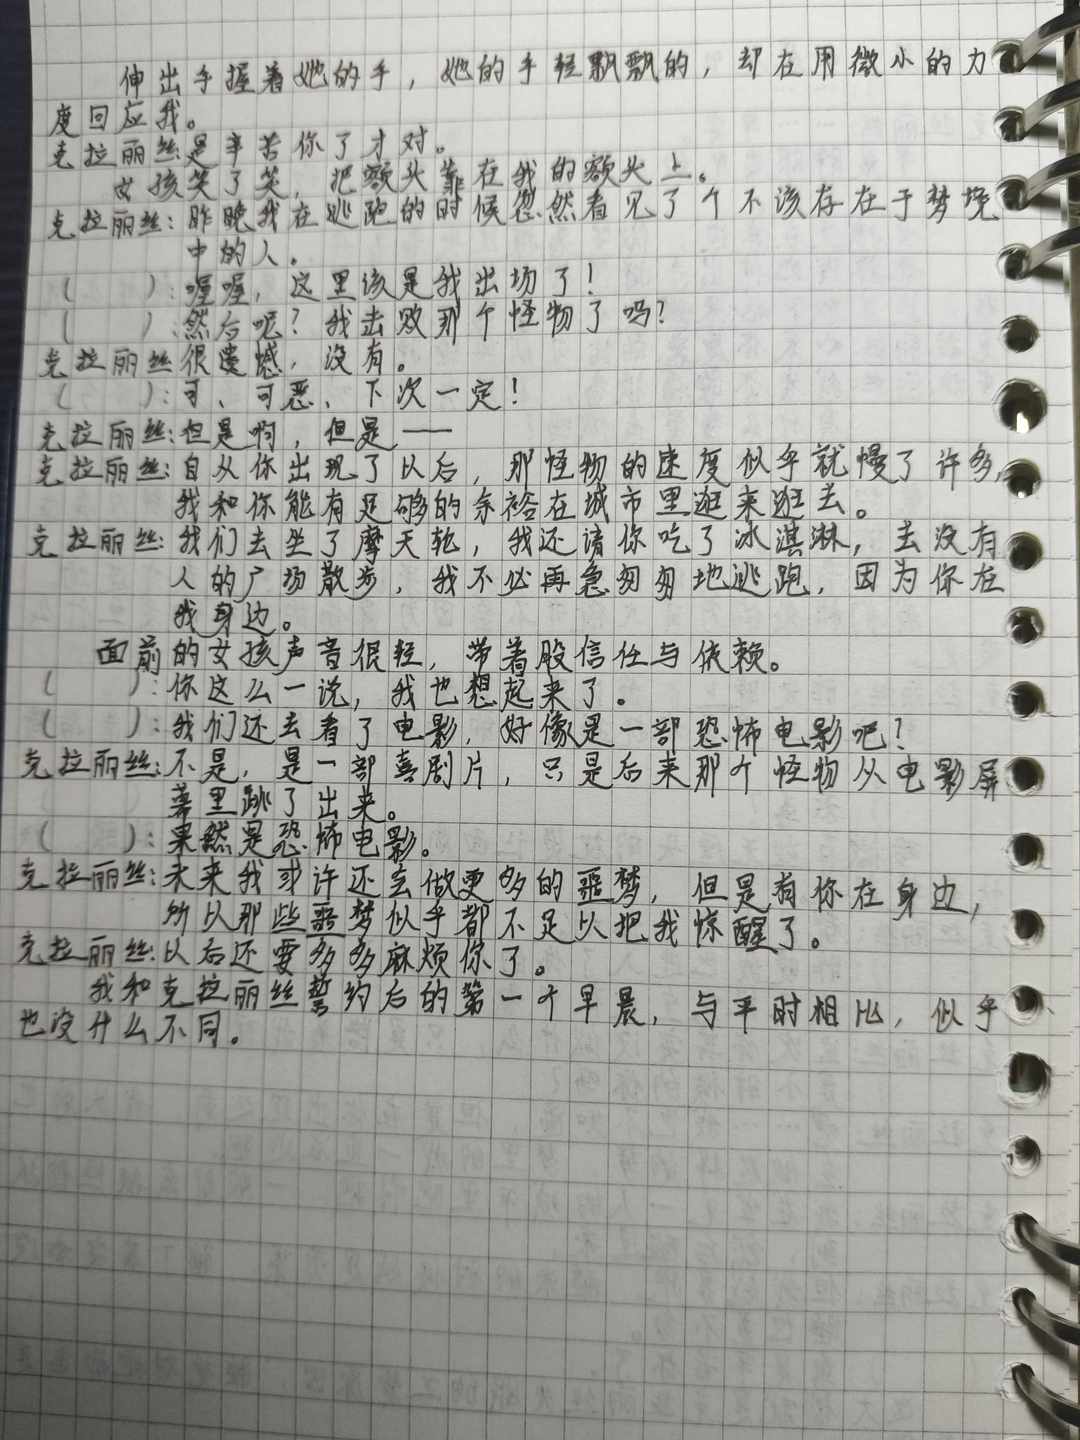 伸出手握着她的手，她的手轻飘飘的，却在用微小的力
度回应我。
克拉丽丝:是辛苦你了才对。
女孩笑了笑，把额头靠在我的额头上。
克拉丽丝：昨晚我在逃跑的时候忽然看见了个不该存在于梦境
中的人。
（　　）：喔喔，这里该是我出场了！
（　　）：然后呢？我击败那个怪物了吗？
克拉丽丝:很遗憾，没有。
（　　）：可、可恶，下次一定！
克拉丽丝：但是啊，但是——
克拉丽丝：自从你出现了以后，那怪物的速度似乎就慢了许多，
我和你能有足够的余裕在城市里逛来逛去。
克拉丽丝：我们去坐了摩天轮，我还请你吃了冰淇淋，去没有
人的广场散步，我不必再急匆匆地逃跑，因为你在
我身边。
面前的女孩声音很轻，带着股信任与依赖。
（　　）：你这么一说，我也想起来了。
（　　）：我们还去看了电影，好像是一部恐怖电影吧？
克拉丽丝：不是，是一部喜剧片，只是后来那个怪物从电影屏
幕里跳了出来。
（　　）：果然是恐怖电影。
克拉丽丝：未来我或许还会做更多的噩梦，但是有你在身边，
所以那些噩梦似乎都不足以把我惊醒了。
克拉丽丝：以后还要多多麻烦你了。
我和克拉丽丝誓约后的第一个早晨，与平时相比，似乎
也没什么不同。